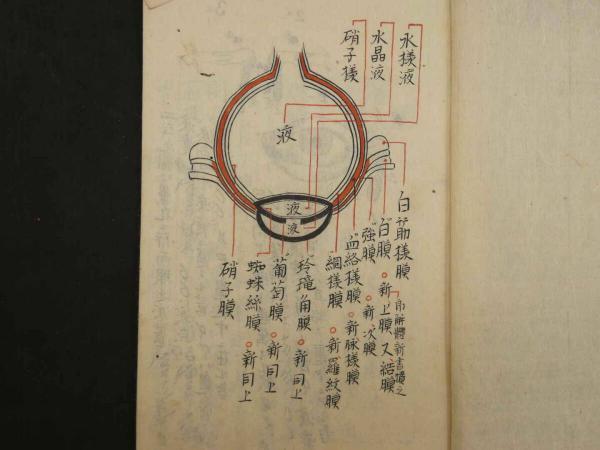 水様液
水晶液
硝子様
液
液
液
白筋様膜
亦解體新書讀之
白膜 ○新上膜 又結膜
強膜 ○新次膜
血絡様膜 ○新脉様膜
綱様膜 ○新羅紋膜
玲瓏角膜 ○新同上
葡萄膜 ○新同上
蜘蛛絲膜 ○新同上
硝子膜